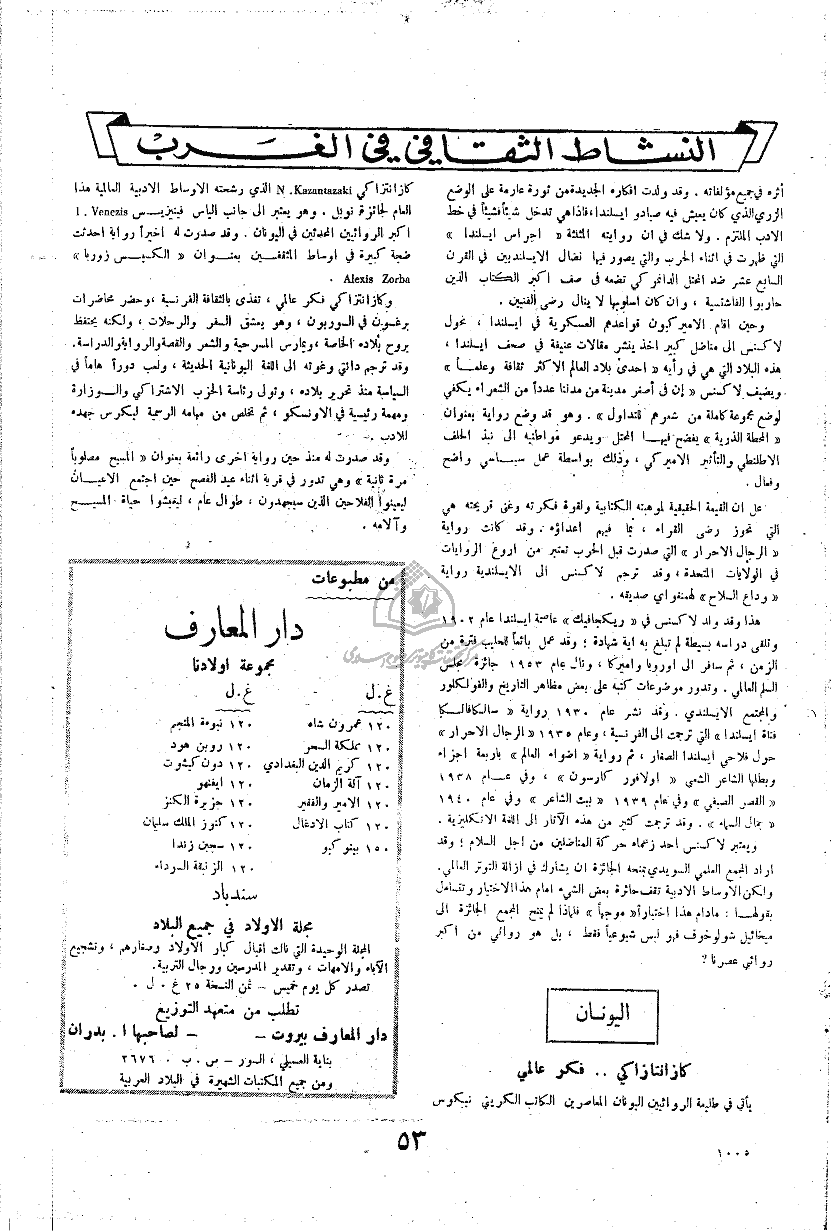 النشاط الثقافي في الغرب
أثره في جميع مؤلفاته . وقد ولدت افكاره الجديدة من ثورة عارمة على الوضع
الزري الذي كان يعيش فيه صيادو ايسلندا، فاذا هي تدخل شيئاً فشيئاً في خط
الادب الملتزم . ولا شك في ان روايته المثلثة « اجراس ايسلندا »
التي ظهرت في اثناء الحرب والتي يصور فيها نضال الايسلنديين في القرن
السابع عشر ضد المحتل الدانمركي تضعه في صف اكبر الكتاب الذين
حاربوا الفاشتسية ، وان كان اسلوبها لا ينال رضى الفنيين .
وحين اقام الاميركيون قواعدهم العسكرية في ايسلندا ، تحول
لاكسنس الى مناضل كبير اخذ ينشر مقالات عنيفة في صحف ايسلندا ،
هذه البلاد التي هي في رأيه « احدى بلاد العالم الاكثر ثقافة وعلماً »
ويضيف لاكسنس « إن في أصغر مدينة من مدننا عدداً من الشعراء يكفي
لوضع مجموعة كاملة من شعرهم للتداول » . وهو قد وضع رواية بعنوان
« المحطة الذرية » يفضح فيها المحتل ويدعو مواطنيه الى نبذ الحلف
الاطلنطي والتأثير الاميركي ، وذلك بواسطة عمل سياسي واضح
وفعال .
على ان القيمة الحقيقية لموهبته الكتابية ولقوة فكرته وغنى قريحته هي
التي تحوز رضى القراء ، بما فيهم اعداؤه . وقد كانت رواية
« الرجال الاحرار » التي صدرت قبل الحرب تعتبر من اروع الروايات
في الولايات المتحدة ، وقد ترجم لاكسنس الى الايسلندية رواية
« وداع السلاح » لهمنغواي صديقه .
هذا وقد ولد لاكسنس في « ريكجافيك » عاصمة ايسلندا عام ١٩٠٢
وتلقى دراسة بسيطة لم تبلغ به اية شهادة ؛ وقد عمل بائعاً للحليب فترة من
الزمن ، ثم سافر الى اوروبا واميركا ، ونال عام ١٩٥٣ جائزة مجلس
السلم العالمي . وتدور موضوعات كتبه على بعض مظاهر التاريخ والفولكلور
والمجتمع الايسلندي . وقد نشر عام ١٩٣٠ رواية « سالكافالكا
فتاة ايسلندا » التي ترجمت الى الفرنسية ، وعام ١٩٣٥ « الرجال الاحرار »
حول فلاحي ايسلندا الصغار ، ثم رواية « اضواء العالم » باربعة اجزاء
وبطلها الشاعر الشعبي « اولافور كارسون » ، وفي عام ١٩٣٨
« القصر الصيفي » وفي عام ١٩٣٩ « بيت الشاعر » وفي عام ١٩٤٠
« جمال السماء » . وقد ترجمت كثير من هذه الآثار الى اللغة الانكليزية .
ويعتبر لاكسنس احد زعماء حركة المناضلين من اجل السلام ؛ وقد
اراد المجمع العلمي السويدي بمنحه الجائزة ان يشارك في ازالة التوتر العالمي .
ولكن الاوساط الادبية تقف حائرة بعض الشيء امام هذا الاختيار وتتساءل
بقولها : مادام هذا اختياراً « موجهاً » فلماذا لم يمنح المجمع الجائزة الى
ميخائيل شولوخوف فهو ليس شيوعياً فقط ، بل هو روائي من اكبر
روائي عصرنا ؟
اليونان
كازانتزاكي .. فكر عالمي
يأتي في طليعة الروائيين اليونان المعاصرين الكاتب الكريتي نيكوس
كازانتزاكي N . Kazantazaki الذي رشحته الاوساط الادبية العالمية هذا
العام لجائزة نوبل . وهو يعتبر الى جانب الياس فينيزيس I . Venezis
اكبر الروائيين المحدثين في اليونان . وقد صدرت له اخيراً رواية احدثت
ضجة كبيرة في اوساط المثقفين بعنوان « الكسيس زوربا »
Alexis Zorba .
وكازانتزاكي فكر عالمي ، تغذى بالثقافة الفرنسية ، وحضر محاضرات
برغسون في السوربون ، وهو يعشق السفر والرحلات ، ولكنه يحتفظ
بروح بلاده الخاصة ، ويمارس المسرحية والشعر والقصة والرواية والدراسة .
وقد ترجم دانتي وغوته الى اللغة اليونانية الحديثة ، ولعب دوراً هاماً في
السياسة منذ تحرير بلاده ، وتولى رئاسة الحزب الاشتراكي والوزارة
ومهمة رئيسية في الاونسكو ، ثم تخلص من مهامه الرسمية ليكرس جهده
للادب .
وقد صدرت له منذ حين رواية اخرى رائعة بعنوان « المسيح مصلوباً
مرة ثانية » وهي تدور في قرية اثناء عيد الفصح حين اجتمع الاعيان
ليعينوا الفلاحين الذين سيجهدون ، طوال عام ، ليعيشوا حياة المسيح
وآلامه .
من مطبوعات
دار المعارف
مجموعة اولادنا
غ.ل غ.ل
١٢٠ عمرون شاه ١٢٠ نبوءة المنجم
١٢٠ مملكة السحر ١٢٠ روبن هود
١٢٠ كريم الدين البغدادي ١٢٠ دون كيشوت
١٢٠ آلة الزمان ١٢٠ ايفنهو
١٢٠ الامير والفقير ١٢٠ جزيرة الكنز
١٢٠ كتاب الادغال ١٢٠ كنوز الملك سليمان
١٥٠ بينوكيو ١٢٠ سجين زندا
١٢٠ الزنبقة السوداء
سندباد
مجلة الاولاد في جميع البلاد
المجلة الوحيدة التي نالت اقبال كبار الاولاد وصغارهم ، وتشجيع
الآباء والامهات ، وتقدير المدرسين ورجال التربية.
تصدر كل يوم خميس – ثمن النسخة ٢٥ غ . ل .
تطلب من متعهد التوزيع
دار المعارف بيروت – – لصاحبها ا . بدران
بناية العسيلي ، السور – ص . ب ٠ ٢٦٧٦
ومن جميع المكتبات الشهيرة في البلاد العربية
٥٣
١٠٠٥